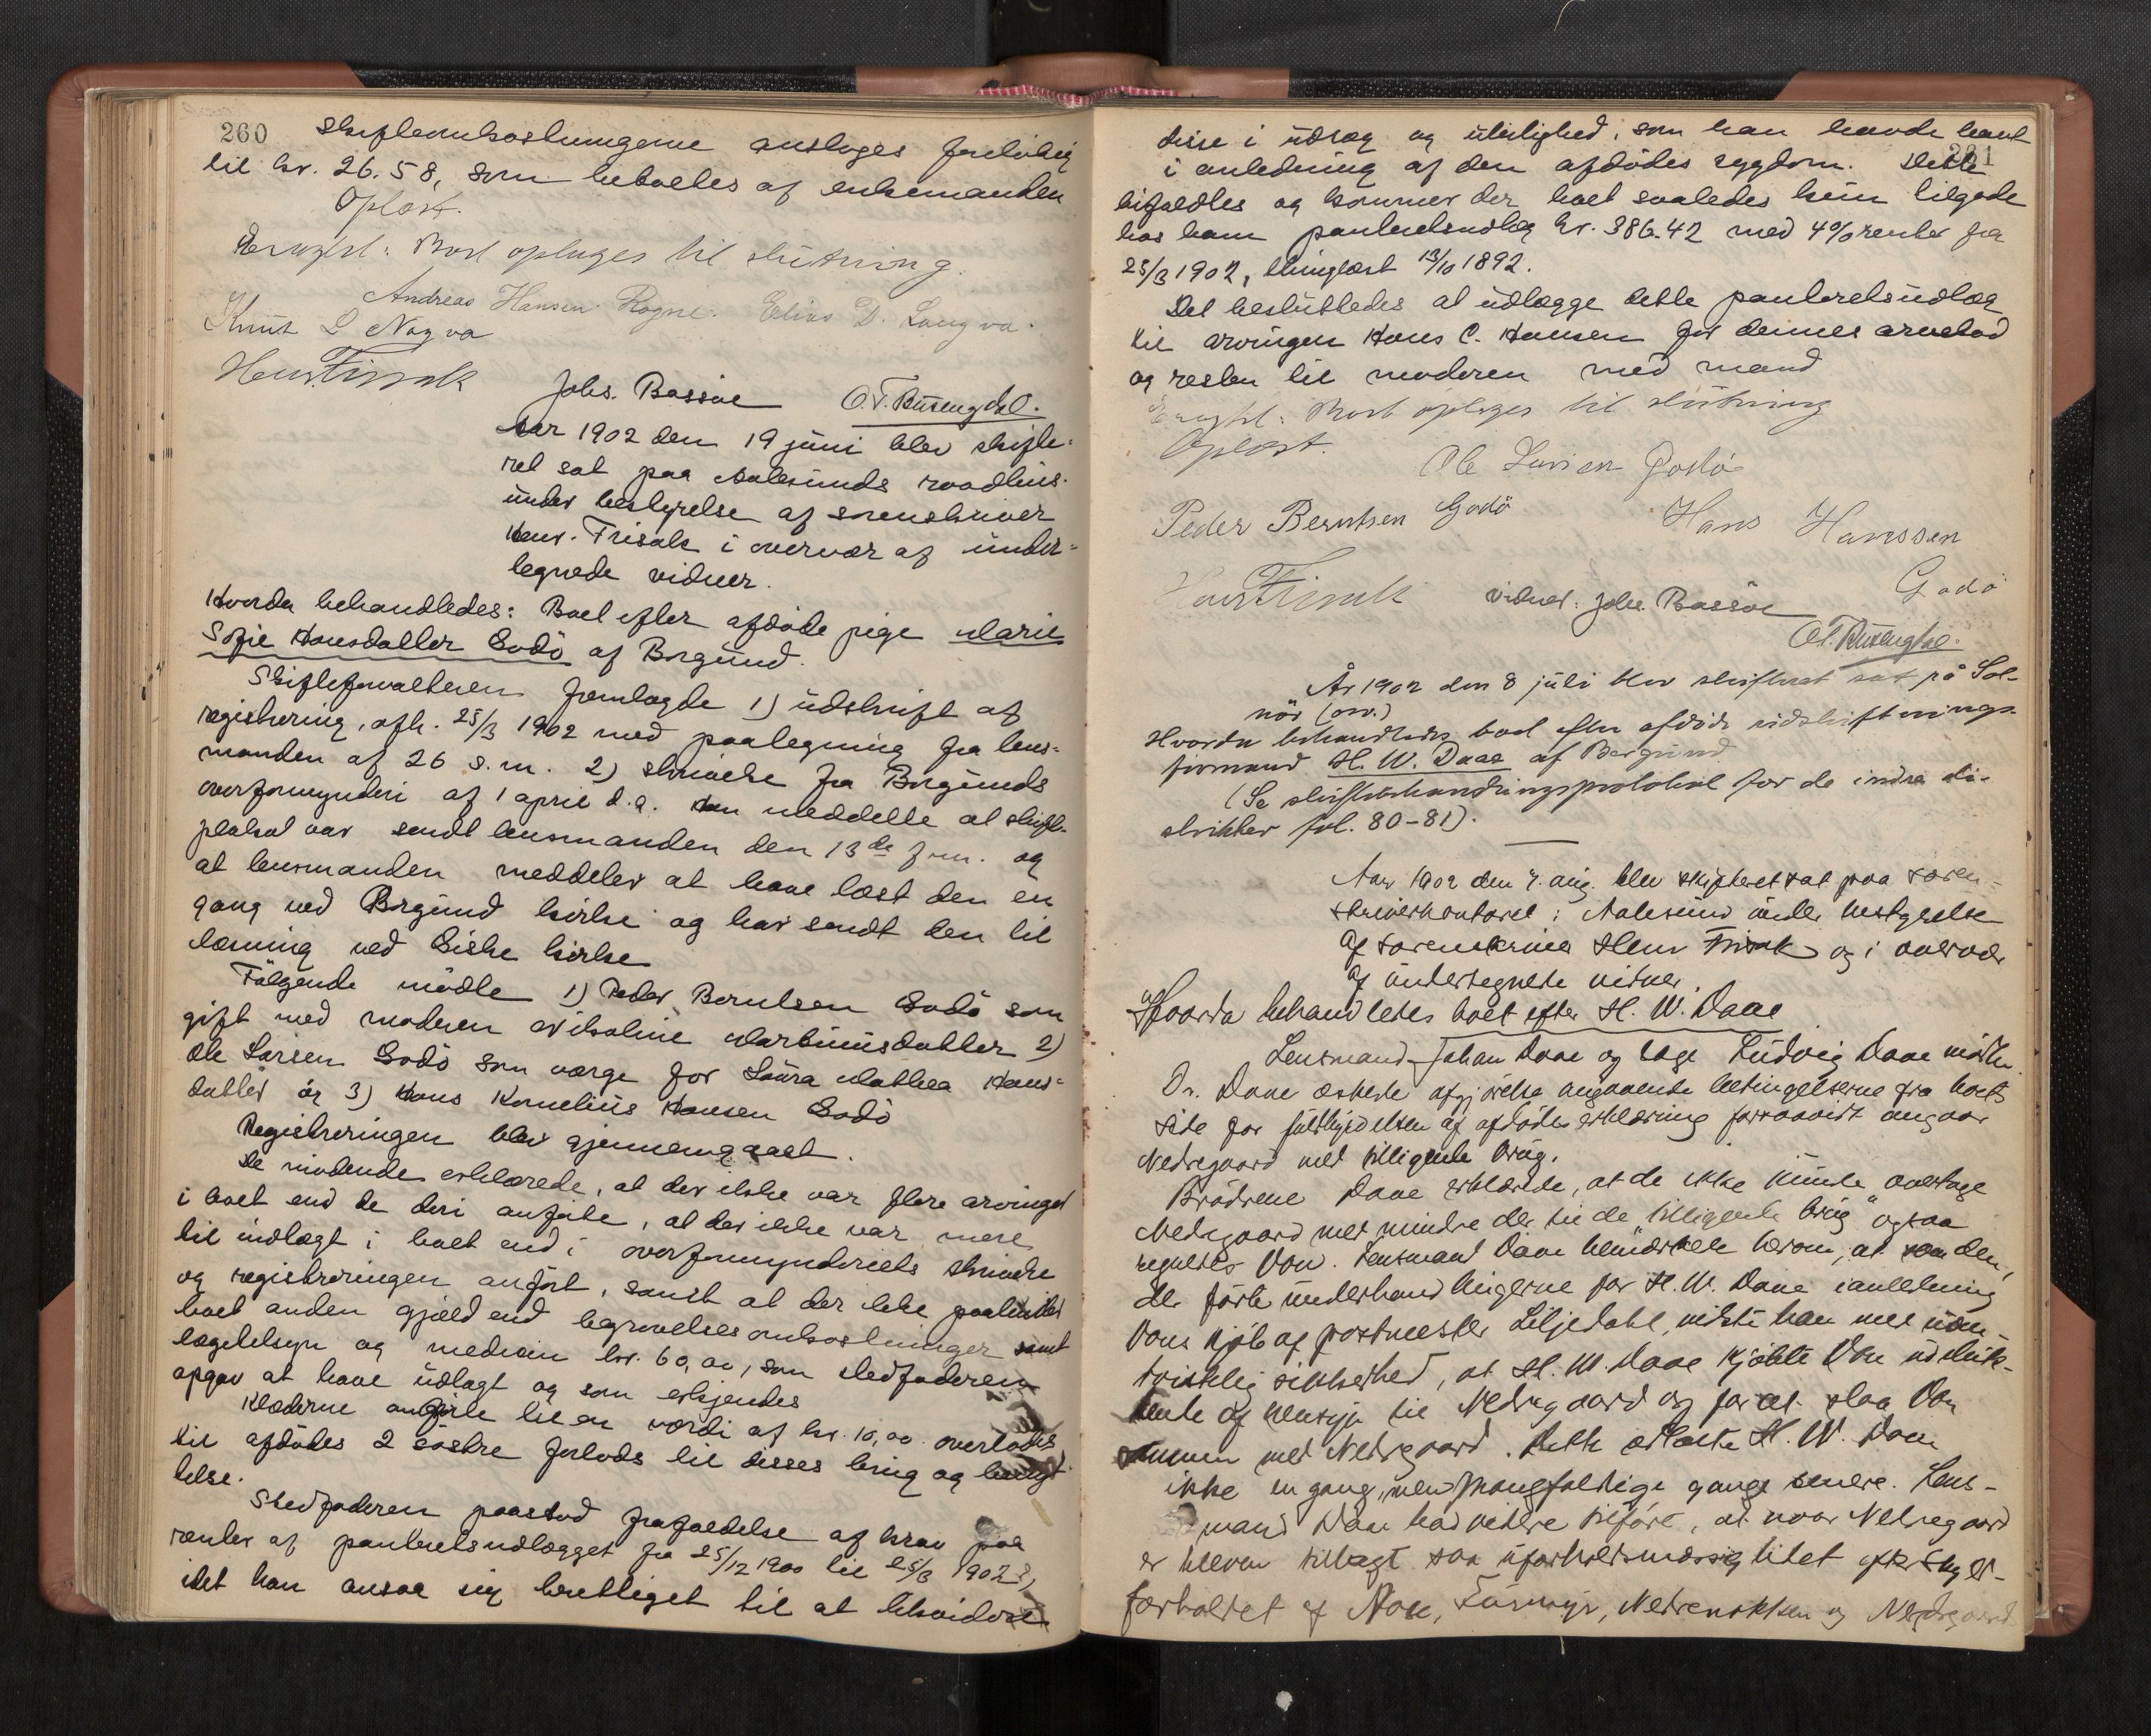 260
Skifteomkostningerne ansloges foreløbig
til kr. 26.58, som betaltes af enkemanden
Oplæst.
Eragtet: Boet optages til slutning.
Andreas Hansen Rogne. Elias D. Longva.
Knut L Nogva
Henr Frisak
Johs. Bassøe O. T. Busengdal.
Aar 1902 den 19 juni blev skifte=
ret sat paa Aalesunds raadhus
under bestyrelse af sorenskriver
Henr. Frisak i overvær af under=
tegnede vidner.
Hvorda behandledes: Boet efter afdøde pige Marie
Sofie Hansdatter Godø af Borgund.
Skifteforvalteren fremlagde 1) udskrift af
registrering, afh. 25/3 1902 med paategning fra lens=
manden af 26 s.m. 2) skrivelse fra Borgunds
overformynderi af 1 april d.a. Han meddelte at skift-
plakat var sendt lensmanden den 13de f.m. og
at lensmanden meddeler at have læst den en
gang ved Borgund kirke og har sendt den til
læsning ved Giske kirke
Følgende mødte 1) Peder Berntsen Godø som
gift med moderen Nikoline Martinusdatter 2)
Ole Larsen Godø som værge for Laura Mathea Hans=
datter og 3) Hans Kornelius Hansen Godø
Registreringen blev gjennemgaaet.
De mødende erklærede, at der ikke var flere arvinger
i boet end de deri anførte, at der ikke var mere
til indtægt i boet end i overformynderiets skrivelse
og registreringen anført, samt at der ikke paahviled
boet anden gjæld end begravelsesomkostninger samt
lægetilsyn og medicin kr. 60,00, som stedfaderen
opgav at have udlagt og som erkjendes
Klæderne anførte til en værdi af kr. 10,00 overlodes
til afdødes 2 søstre forlods til disses brug og benyt
telse.
Stedfaderen paastod frafaldelse af krav paa
renter af panteretsudlægget fra 25/12 1900 til 25/3 1902,
idet han ansaa sig berettiget til at likvidere
261
disse i udlæg og uleilighed, som han havde havt
i anledning af den afdødes sygdom. Dette
bifaldtes og kommer der boet saaledes kun tilgode
hos ham panteretsudlæg kr. 386.42 med 4% renter fra
25/3 1902, thinglæst 13/10 1892.
Det besluttedes at udlægge dette panteretsudlæg
til arvingen Hans C. Hansen for dennes arvelod
og resten til moderen med mand
Eragtet: Boet optages til slutning
Oplæst.
Ole Larsen Godø
Peder Berntsen Godø Hans Hanssen
Godø
Henr Frisak vidner: Johs. Bassøe
O. T. Busengdal.
År 1902 den 8 juli blev skifteret sat på Sol-
nør (osv.)
Hvorda behandledes boet efter afdøde udskiftnings-
formand H. W. Daae af Borgund
(Se skiftebehandlingsprotokol for de indre di-
strikter fol. 80-81).
Aar 1902 den 7. aug. blev skifteret sat paa soren=
skriverkontoret i Aalesund under bestyrelse
af sorenskriver Henr Frisak og i overvær
af undertegnede vidner.
Hvorda behandledes boet efter H. W. Daae
Lensmand Johan Daae og læge Ludvig Daae mødte.
Dr. Daae æskede afgjørelse angaaende betingelserne fra boets
side for fuldbyrdelsen af afdødes erklæring forsaavidt angaar
Nedregaard med tilligende brug.
Brødrene Daae erklærede, at de ikke kunde overtage
Nedregaard med mindre der til de "tilligende brug" ogsaa
regnedes Von. Lensmand Daae bemærkede herom, at som den,
der førte underhandlingerne for H. W. Daae i anledning
Vons kjøb af postmester Liljedahl, vidste han med uom-
tvistelig sikkerhed, at H. W. Daae kjøbte Von udeluk-
kende af hensyn til Nedregaard og for at slaa Von
sammen med Nedregaard. Dette erklærte H. W. Daae
ikke en gang, men mangfoldige gange senere. Lens-
mand Daae had videre tilføre, at naar Nedregaard
er bleven tillagt saa uforholdsmæssig lidet efter skyld-
forholdet af Nose, Nedrenakken og Nedregaard